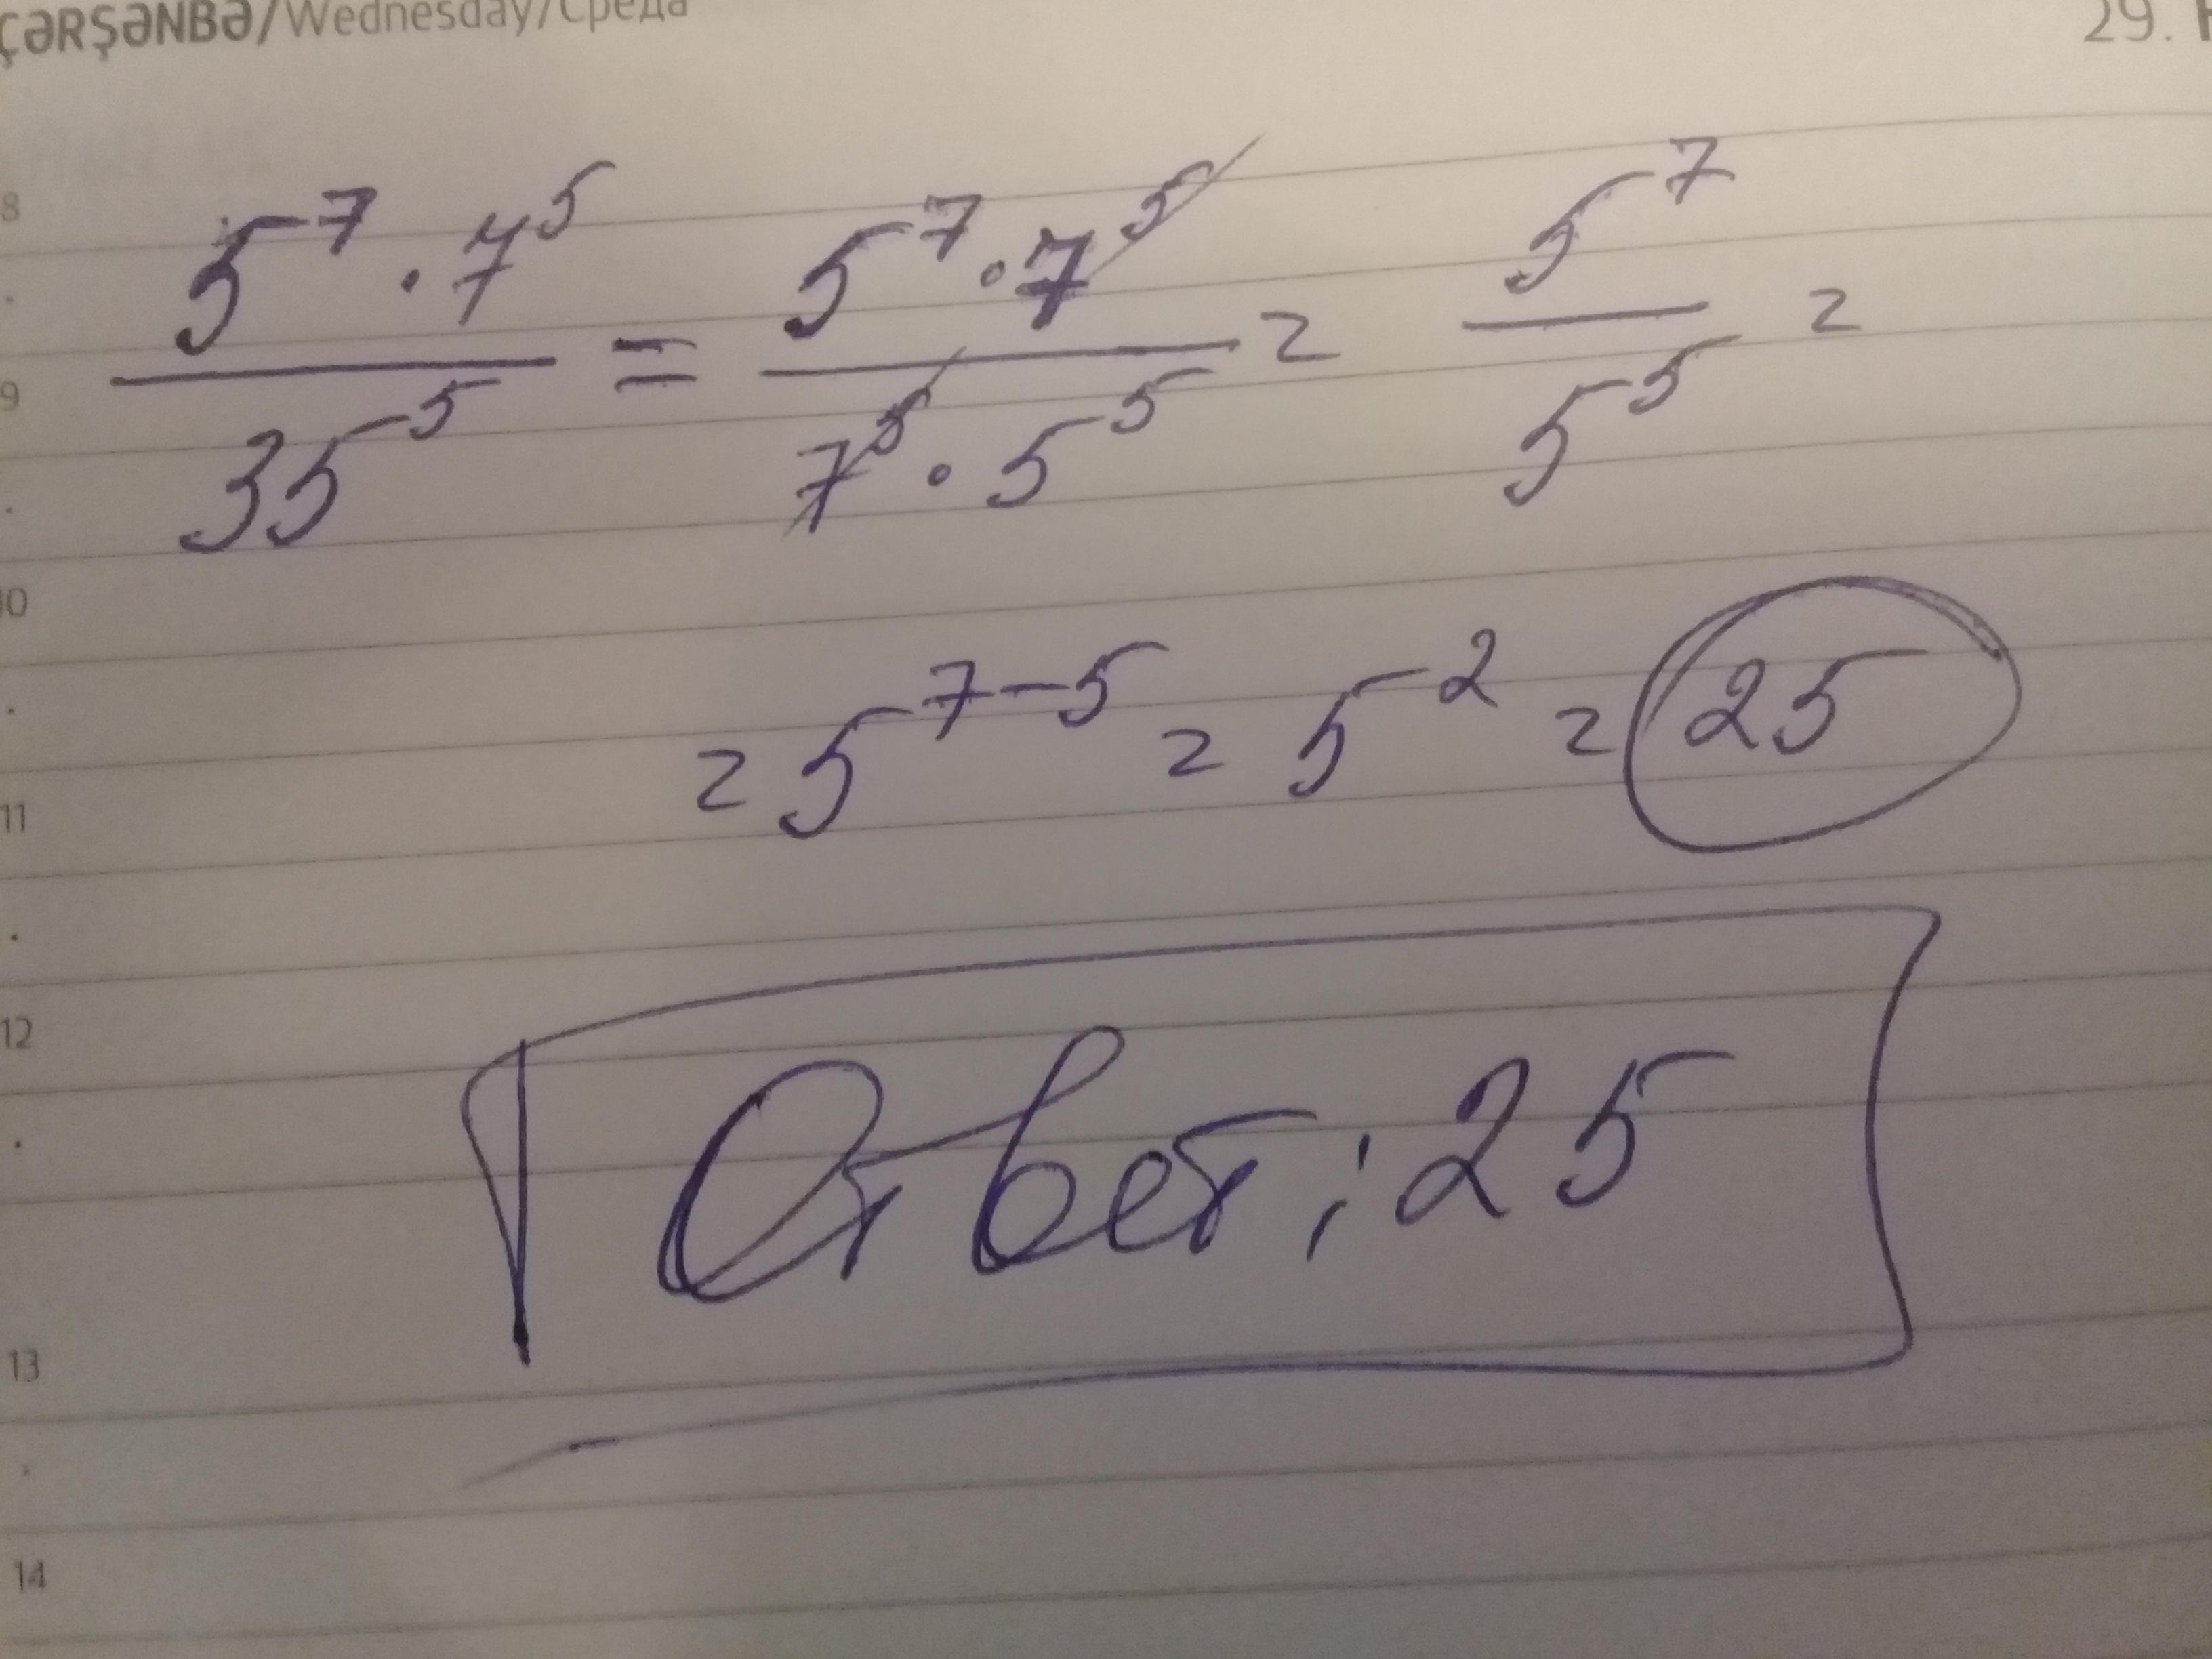 ÇƏRŞƏNBƏ/Wednesday/Среда 29.
8
9
10
11
12
13
14
5⁷ · 7⁵ / 35⁵ = 5⁷ · 7⁵ / 7⁵ · 5⁵ = 5⁷ / 5⁵ =
= 5⁷⁻⁵ = 5² = 25
Ответ: 25